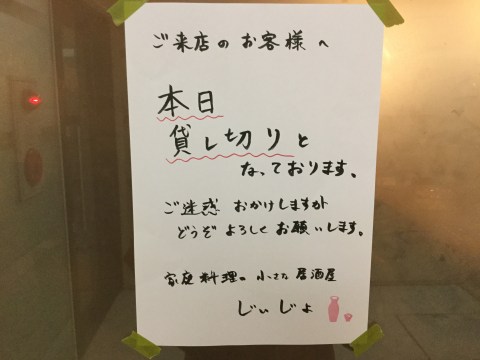 ご来店のお客様へ
本日
貸し切りと
なっております。
ご迷惑 おかけしますが
どうぞ よろしく お願いします。
家庭料理の 小さな 居酒屋
じぃじょ